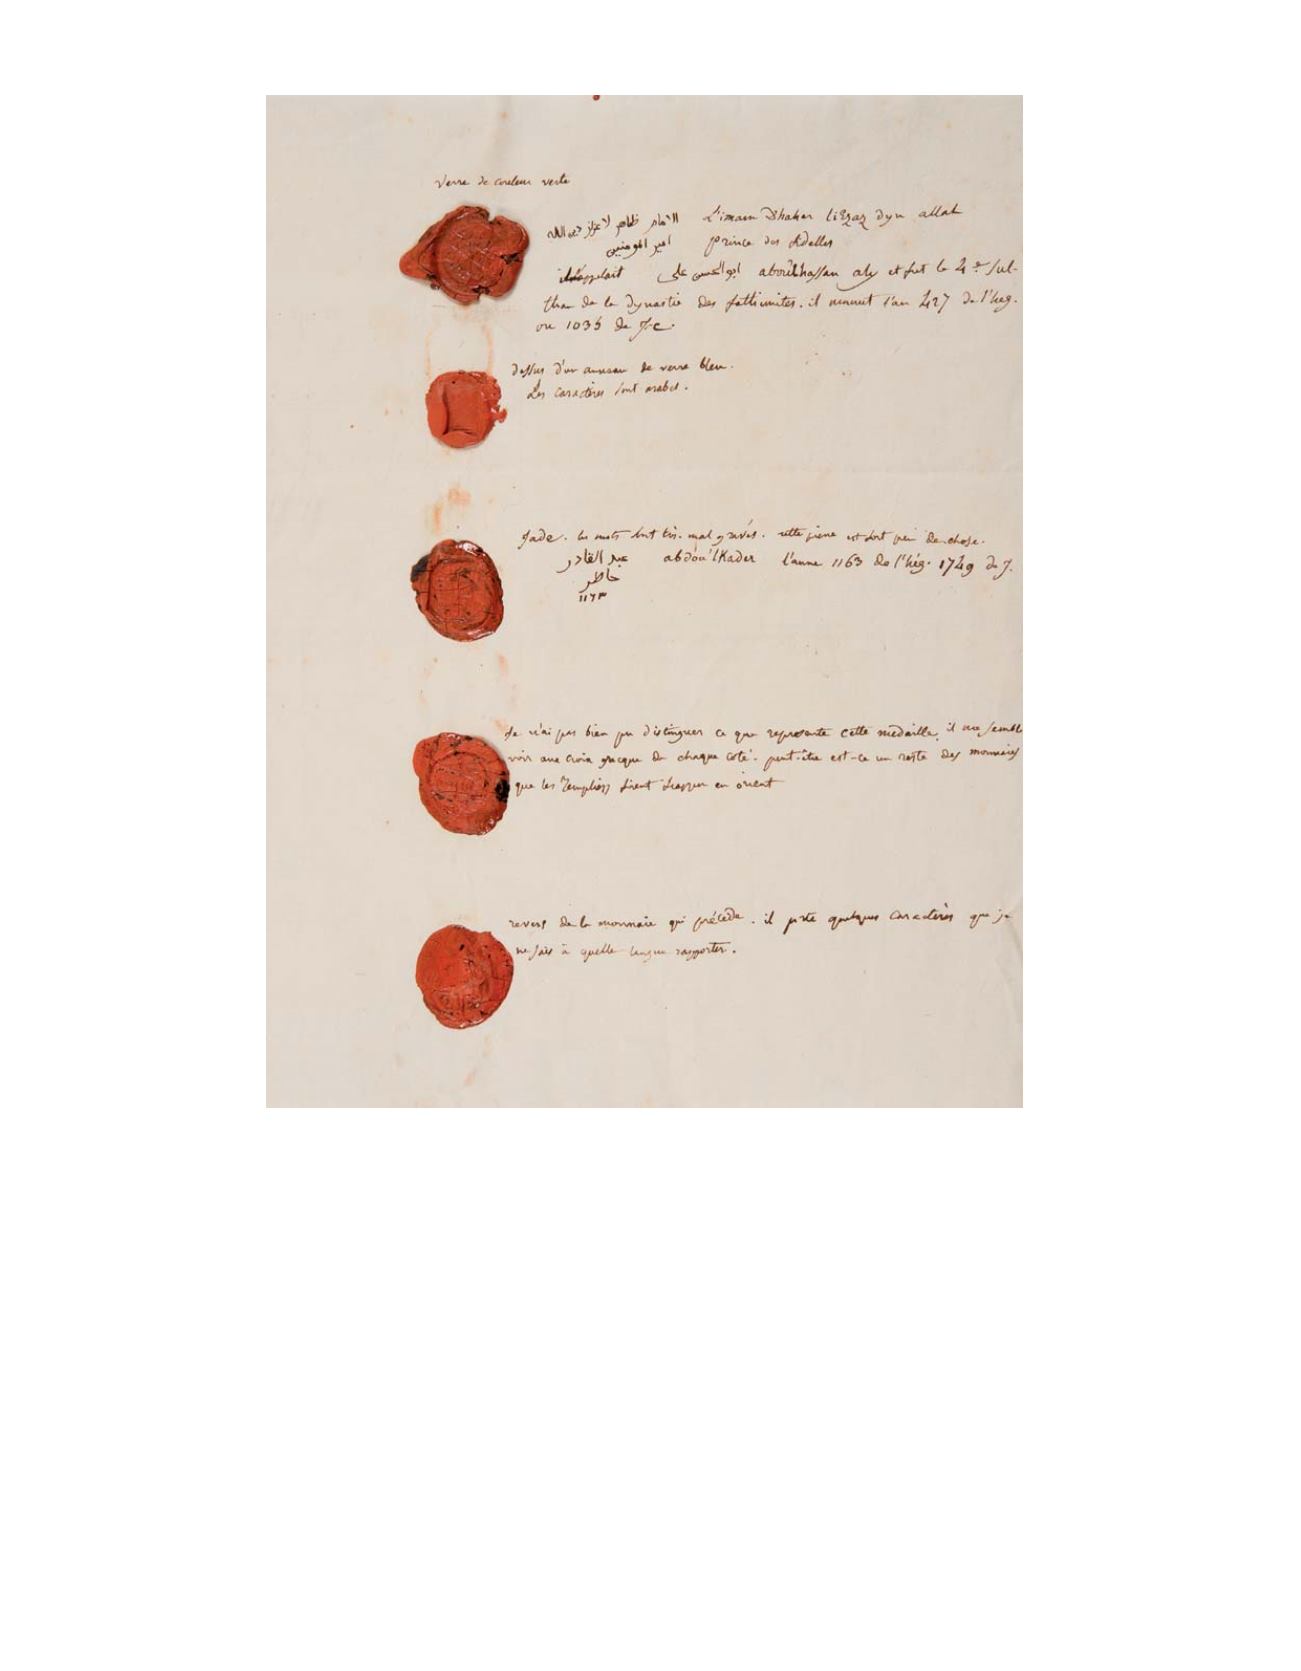 Verre de couleur verte
الامام ظاهر لاعزاز دين الله L'imam Dhaher liEzaz dyn allah
امير المومنين prince des fidelles
il s'appelait ابو الحسن علی aboùlhassan aly et fut le 4e sul-
than de la dynastie des fathimites. il mourut l'an 427 de l'heg.
ou 1035 de J-C.
dessus d'un anneau de verre bleu.
Les caractères sont arabes.
Jade. les mots sont très-mal gravés. cette pierre est fort peu de chose.
عبد القادر abdoù'lKader l'année 1163 de l'hég. 1749 de J.
خاطر
١١٦٣
Je n'ai pas bien pu distinguer ce que represente cette medaille, il me sembl
voir une croix grecque de chaque coté. peut-être est-ce un reste des monnaies
que les Templiers firent frapper en orient
revers de la monnaie qui précède. il porte quelques caractères que je
ne sais à quelle langue rapporter.